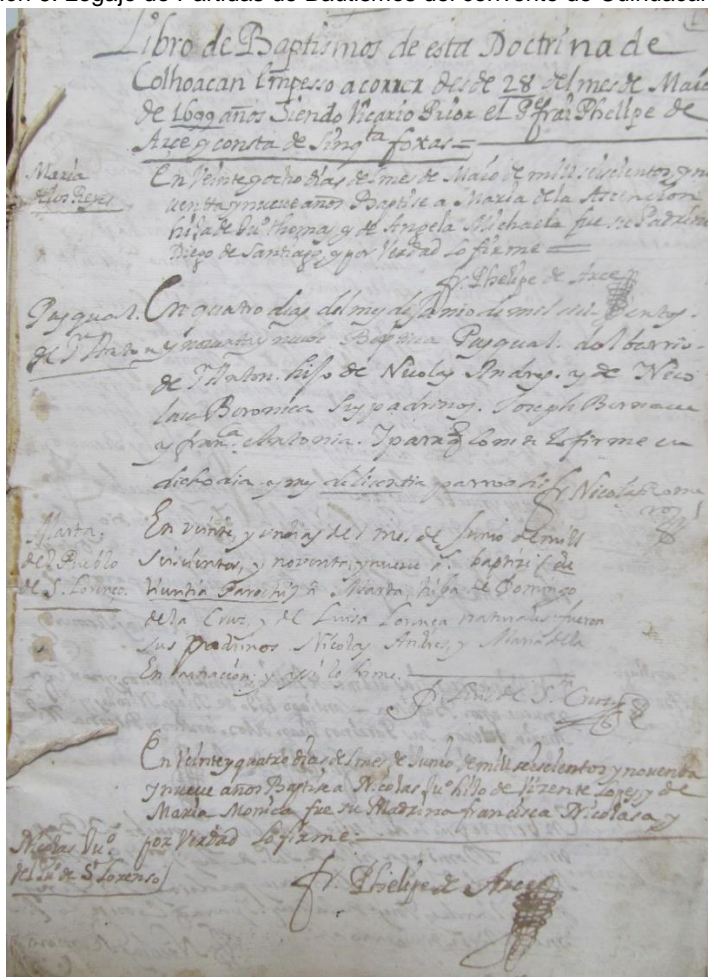 Libro de Baptismos de esta Doctrina de
Colhoacan Empesso a correr desde 28 del mes de Maio
de 1699 años Siendo Vicario Prior el Pe frai Phelipe de
Arce y consta de sinqta foxas
Maria
de los Reyes
En Veinte y ocho dias del mes de Maio de mill seiscientos y no
venta y nueve años Baptise a Maria de la Ascencion
hija de Juo thomas y de Angela Michaela fue su Padrino
Diego de Santiago, y por Verdad lo firme
fr. Phelipe de Arce
Pasqual.
de Sn Anton
En quatro dias del mes de Junio de mil
y noventa y nueve Baptice Pasqual. del barrio
de Sn Anton. hijo de Nicolas Andres. y de Nico
lasa Beronica Sus padrinos. Joseph
y franca Antonia. Y para q conste lo firme en
dicho dia. y mes de lisentia parrochi fr Nicolas
Marta,
del Pueblo
de S. Lorenço.
En veinte, y un dias del mes de Junio de mill
Seiscientos, y noventa, y nueve as. baptizè (de
licentia Parochi) à Marta, hija de Domingo
de la Cruz, y de Luisa Lorença naturales: fueron
sus padrinos Nicolas Andres, y Maria de la
Encarnacion; y assi lo firme.
Fr. de S.
En Veinte y quatro dias del mes de Junio, de mill seiscientos y noventa
y nueve años Baptise a Nicolas Juo hijo de Vizente Lopez, y de
Maria Monica fue su Madrina francisca Nicolasa y
por Verdad lo firme.
Nicolas Juo
del de Sn Lorenso
fr. Phelipe de Arce